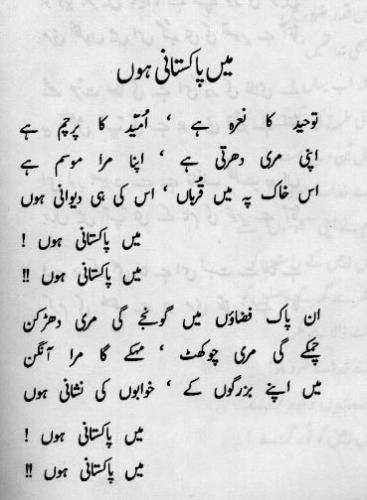 میں پاکستانی ہوں
توحید کا نعرہ ہے ، اُمیّد کا پرچم ہے
اپنی مری دھرتی ہے ، اپنا مرا موسم ہے
اس خاک پہ میں قرباں ، اس کی ہی دیوانی ہوں
میں پاکستانی ہوں !
میں پاکستانی ہوں !!
ان پاک فضاؤں میں گونجے گی مری دھڑکن
چمکے گی مری چوکھٹ ، مہکے گا مرا آنگن
میں اپنے بزرگوں کے ، خوابوں کی نشانی ہوں
میں پاکستانی ہوں !
میں پاکستانی ہوں !!